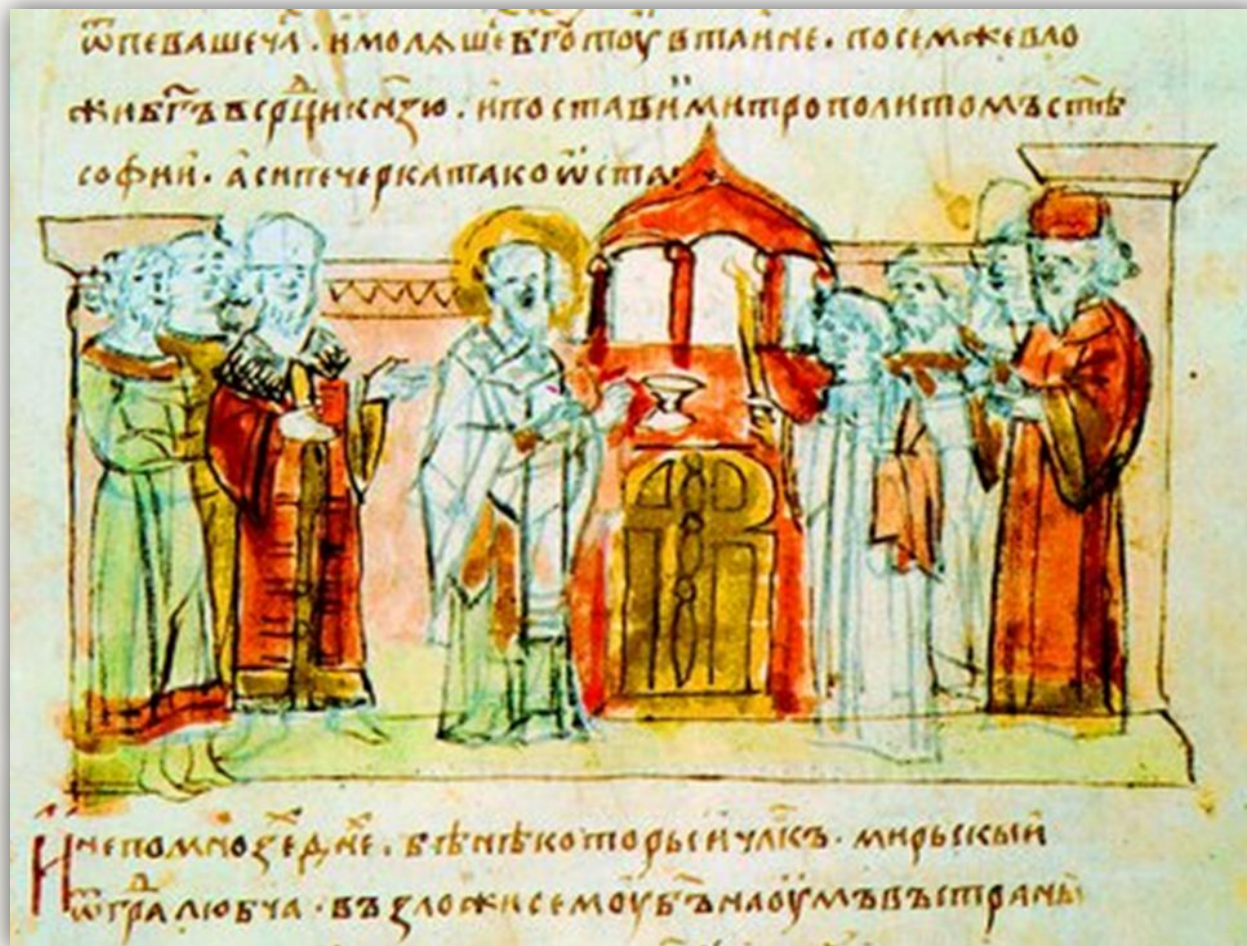 ѿпѣвашечѧ · и молѧше бг҃оу втаине · посемже вло
жи бг҃ъ в срⷣци кнѧзю · и постави и митрополитомъ ст҃ѣ
софии · а си печерка тако ѿста
И не по мнозѣхъ дне · бѣ нѣкоторыи чл҃къ · мирьскыи
ѿ граⷣ любча · възложи семоу бъ҃ на оумъ въ страны